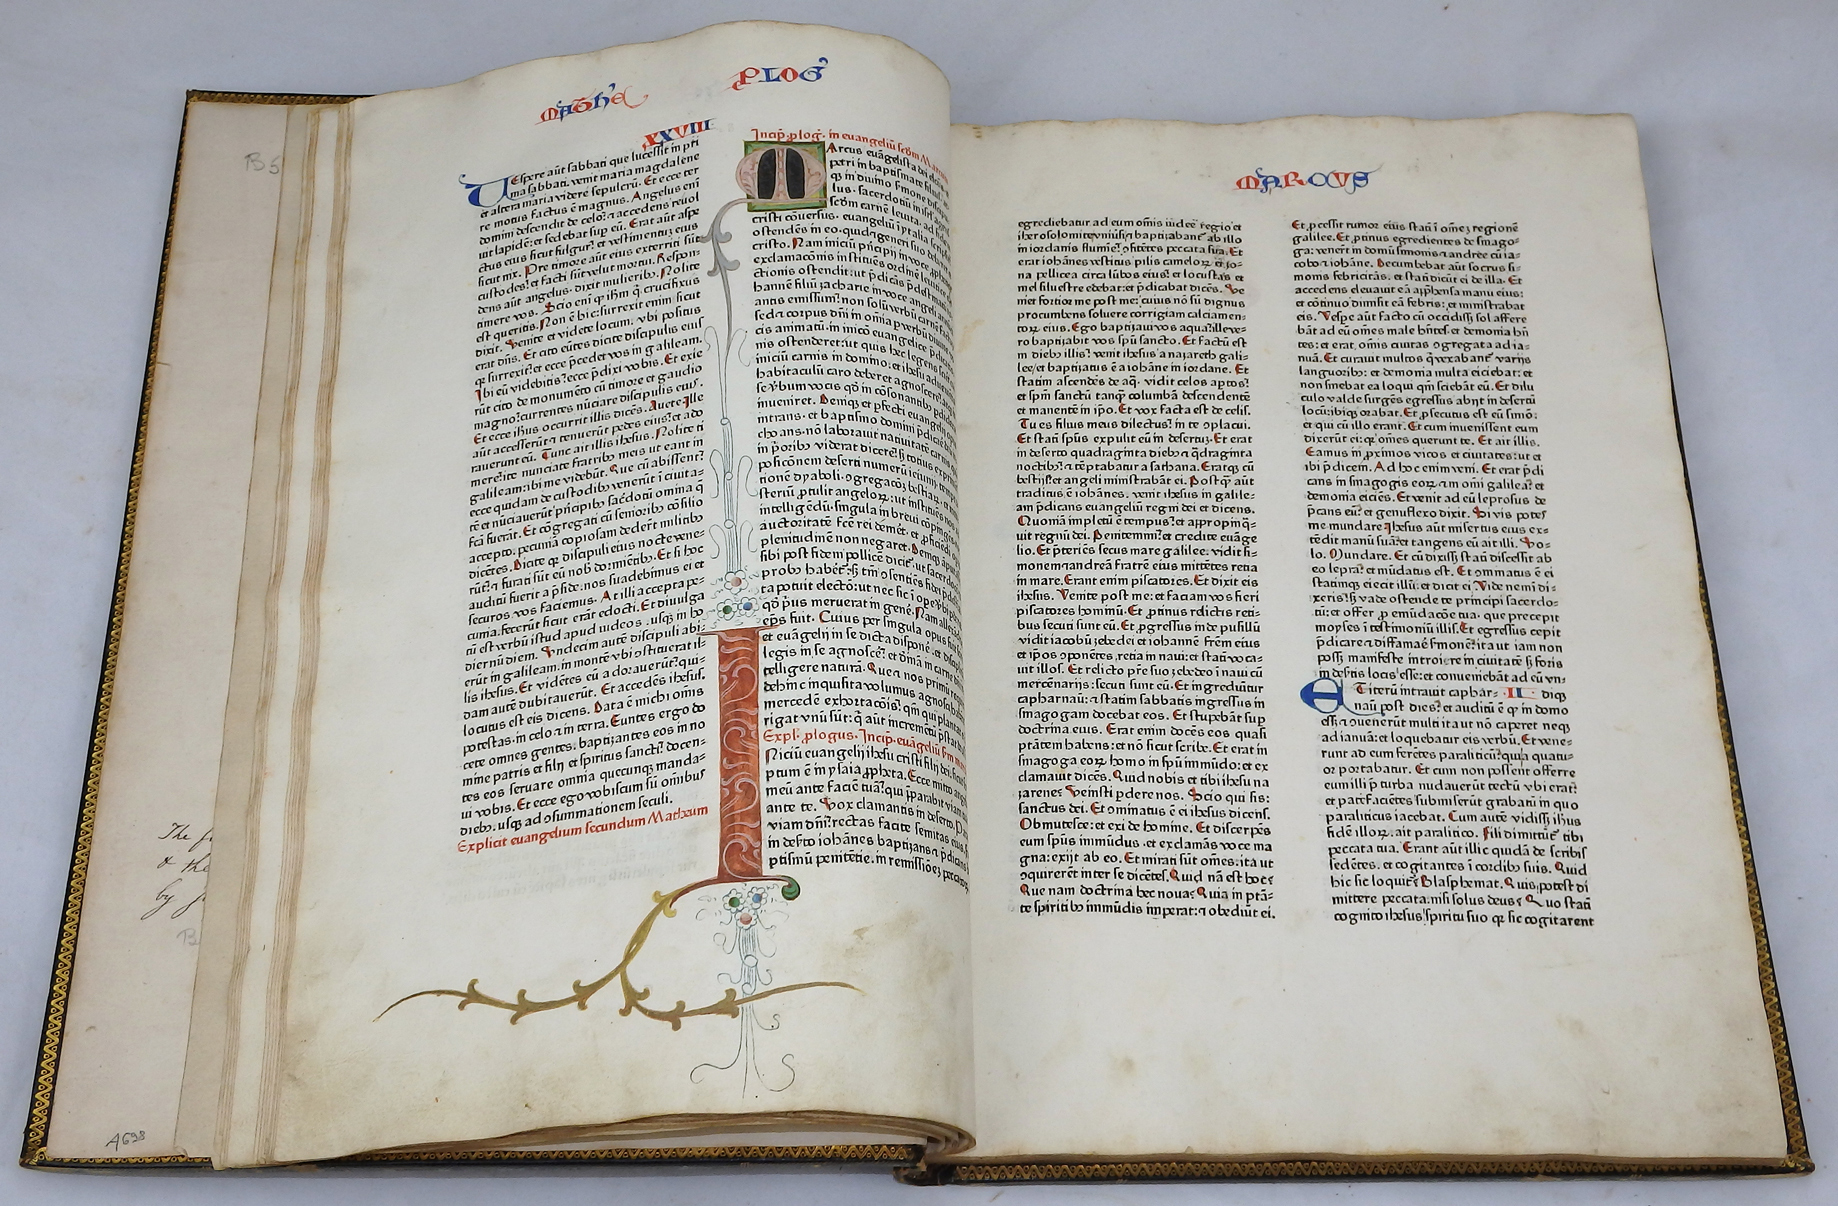 MATHE
PLOG'
XXVIII
VEspere aūt sabbati que lucessit in pri
ma sabbati. venit maria magdalene
et altera maria videre sepulcrū. Et ecce ter
re motus factus ē magnus. Angelus enī
domini descendit de celo: ⁊ accedens reuol
uit lapidē: et sedebat sup eū. Erat aūt aspe
ctus eius sicut fulgur: et vestimentū eius
sicut nix. Pre timore aūt eius exterriti sūt
custodes: et facti sūt velut mortui. Respon
dens aūt angelus. dixit mulierib. Nolite
timere vos. Scio enī q ihm q crucifixus
est queritis. Non ē hic: surrexit enim sicut
dixit. Venite et videte locum. vbi positus
erat dn̄s. Et cito eūtes dicite discipulis eius
q surrexit: et ecce p̄cedet vos in galileam.
Ibi eū videbitis: ecce p̄dixi vobis. Et exie
rūt cito de monumēto cū timore et gaudio
magno: currentes nūciare discipulis eius.
Et ecce ihūs occurrit illis dicēs. Auete. Ille
aūt accesserūt ⁊ tenuerūt pedes eius: et ado
rauerunt eū. Tunc ait illis ihesus. Nolite ti
mere: ite nunciate fratrib meis ut eant in
galileam: ibi me videbūt. Que cū abissent:
ecce quidam de custodib venerūt ī ciuita-
tē et nūciauerūt prīcipib sacdotū omīa q̄
fcā fuerāt. Et cōgregati cū seniorib cōsilio
accepto. pecuniā copiosam dederūt militib
dicētes. Dicite q discipuli eius nocte vene-
rūt: ⁊ furati sūt eū nob dormiētib. Et si hoc
auditū fuerit a p̄side. nos suadebimus ei et
securos vos faciemus. At illi accepta pe-
cunia. fecerūt sicut erāt edocti. Et diuulga
tū est verbū istud apud iudeos. usq in ho
diernū diem. Vndecim autē discipuli abi-
erūt in galileam. in montē vbi ɔstituerat il-
lis ihesus. Et vidētes eū adorauerūt: qui-
dam autē dubitauerūt. Et accedēs ihesus.
locutus est eis dicens. Data ē michi om̄is
potestas. in celo ⁊ in terra. Euntes ergo do
cete omnes gentes. baptizantes eos in no
mine patris et filij et spiritus sancti: docen-
tes eos seruare omnia quecunq manda-
ui vobis. Et ecce ego vobiscum sū omībus
dieb. usq ad ɔsummationem seculi.
Explicit euangelium secundum Matheum
Incip̄ plog. in euangeliū scdm Mar
MArcus euāgelista dei
petri in baptismate
q in diuino smone
lus. sacerdotiū in isrl
scdm carnē leuita. ad
cristi cōuersus. euangeliū ī ytalia
ostendēs in eo. quid ⁊ generi suo
cristo. Nam iniciū prīcipij in voce
exclamacōnis instituēs ordinē
ctionis ostendit: ut p̄dicās
hannē filiū zacharie in voce angeli
antis emissum: non solū verbū carnē
sed ⁊ corpus dn̄i in om̄ia p verbū
cis animatū. in inicō euangelice
nis ostenderet: ut quis hec legens
iniciū carnis in domino: et ihesu
habitaculū caro deberet agnoscere
se vbum vocis qd in cōsonantib
inueniret. Deniq et pfecti euangelij
intrans. et baptismo domini
choans. nō laborauit natiuitatē carnis
in p̄orib viderat dicere
posicōnem deserti numerū ieiunij
tionē dyaboli. ɔgregacōȝ bestiaꝝ
steriū ptulit angeloꝝ: ut instituēs
intelligēdū. singula in breui
auctoritatē fcē rei demēt. et
plenitudinē non negaret. Deniq
sibi post fidem pollicē dicit. ut sacer
probȝ habēt: tm̄ ɔsentiēs fidei
ta potuit electō: ut nec sic ī ope
qd p̄us meruerat in genē. Nam
eps fuit. Cuius per singula opus
et euāgelij in se dicta disponē.
legis in se agnoscē: et
telligere naturā. Que ⁊ nos primū
dehinc inquisita volumus agnosci
mercedē exhortacōis: qm̄ qui
rigat vnū sūt: q̄ aūt incremētū p̄stat
Expl. plogus. Incip. euāgeliū scm
INiciū euangelij ihesu cristi filij dei. sicut
ptum ē in ysaia ppheta. Ecce mitto angelū
meū ante faciē tuā: qui p̄parabit viam
ante te. Vox clamantis in deserto. Parate
viam dn̄i: rectas facite semitas eius. fuit
in desto iohānes baptizans ⁊ p̄dicans
ptismū penitētie. in remissioēȝ peccatoꝝ
MARCVS
egrediebatur ad eum om̄is iudee regio et
iherosolomite vniusi: ⁊ baptizabant ab illo
in iordanis flumiē: ɔfitētes peccata sua. Et
erat iohānes vestitus pilis cameloꝝ et ȝo-
na pellicea circa lūbos eius: et locustas et
mel siluestre edebat: et p̄dicabat dicēs. Ve
niet fortior me post me: cuius nō sū dignus
procumbens soluere corrigiam calciamen-
toꝝ eius. Ego baptizaui vos aqua: ille ve-
ro baptizabit vos spū sancto. Et factū est
in dieb illis: venit ihesus a nazareth gali-
lee/ et baptizatus ē a iohāne in iordane. Et
statim ascendēs de aq. vidit celos aptos:
et spm̄ sanctū tanq̄ columbā descendentē
et manentē in ip̄o. Et vox facta est de celis.
Tu es filius meus dilectus: in te ɔplacui.
Et statī spūs expulit eū in desertū. Et erat
in deserto quadraginta dieb ⁊ q̄draginta
noctib: ⁊ tēptabatur a sathana. Eratq̨ cū
bestijs: et angeli ministrabāt ei. Postq̄ aūt
traditus ē iohānes. venit ihesus in galile-
am p̄dicans euangeliū regni dei et dicens.
Quoniā impletū ē tempus: et appropinq̄-
uit regnū dei. Penitemini: et credite euāge
lio. Et p̄teriēs secus mare galilee. vidit si-
monem ⁊ andreā fratrē eius mittētes retia
in mare. Erant enim piscatores. Et dixit eis
ihesus. Venite post me: et faciam vos fieri
piscatores hominū. Et ptinus relictis reti-
bus secuti sunt eū. Et pgressus inde pusillū
vidit iacobū ȝebedei et iohannē frēm eius
et ip̄os ɔponētes. retia in naui: et statī voca-
uit illos. Et relicto pr̄e suo ȝebedeo ī naui cū
mercēnarijs: secuti sunt eū. Et ingrediūtur
capharnaū: ⁊ statim sabbatis ingressus in
sinagogam docebat eos. Et stupebāt sup
doctrina eius. Erat enim docēs eos quasi
ptātem habens: et nō sicut scribe. Et erat in
sinagoga eoꝝ homo in spū immūdo: et ex
clamauit dicēs. Quid nobis et tibi ihesu na
ȝarene: Venisti pdere nos. Scio qui sis:
sanctus dei. Et ɔminatus ē ei ihesus dicens.
Obmutesce: et exi de homine. Et discerpēs
eum spūs immūdus. et exclamās voce ma
gna: exijt ab eo. Et mirati sūt om̄es: ita ut
ɔquirerēt inter se dicētes. Quid nā est hoc:
Que nam doctrina hec noua: Quia in ptā-
te spiritib immūdis imperat: ⁊ obediūt ei.
Et pcessit rumor eius statī ī omēȝ regionē
galilee. Et ptinus egredientes de sinago-
ga: venerūt in domū simonis ⁊ andree cū ia-
cobo ⁊ iohāne. Decumbebat aūt socrus si-
monis febricitās. et statī dicūt ei de illa. Et
accedens eleuauit eā app̄hensa manu eius:
et cōtinuo dimisit eā febris: et ministrabat
eis. Vespe aūt facto cū occidiss sol affere
bāt ad eū om̄es male hn̄tes. et demonia hn̄
tes: et erat om̄is ciuitas ɔgregata ad ia-
nuā. Et curauit multos q̄ vexabant variis
languorib: et demonia multa eiciebat: et
non sinebat ea loqui qm̄ sciebāt eū. Et dilu
culo valde surgēs egressus abijt in desertū
locū: ibiq orabat. Et psecutus est eū simō:
et qui cū illo erant. Et cum inuenissent eum
dixerūt ei: q om̄es querunt te. Et ait illis.
Eamus ī pximos vicos et ciuitates: ut et
ibi p̄dicem. Ad hoc enim veni. Et erat p̄di
cans in sinagogis eoꝝ ⁊ in om̄i galilea: et
demonia eiciēs. Et venit ad eū leprosus de
p̄cans eū: et genuflexo dixit. Si vis potes
me mundare. Ihesus aūt misertus eius ex-
tēdit manū suā: et tangens eū ait illi. Vo-
lo. Mundare. Et cū dixiss statī discessit ab
eo lepra: et mūdatus est. Et ɔminatus ē ei
statimq̨ eiecit illū: et dicit ei. Vide nemī di-
xeris: s̨ vade ostende te principi sacerdo-
tū: et offer p emūdacōe tua. que precepit
moyses ī testimoniū illis. Et egressus cepit
p̄dicare ⁊ diffamaē smonē: ita ut iam non
poss̨ manifeste introire in ciuitatē s̨ foris
in destis locis esse: et conueniebāt ad eū vn-
ETiterū intrauit caphar- II diq̨
naū post dies: et auditū ē q in domo
ess̨ ⁊ ɔuenerūt multi ita ut nō caperet neq̨
ad ianuā: et loquebatur eis verbū. Et vene-
runt ad eum ferentes paraliticū: qui a quatu-
or portabatur. Et cum non possent offerre
eum illi p̄ turba nudauerūt tectū vbi erat:
et patefaciētes submiserūt grabatū in quo
paraliticus iacebat. Cum autē vidiss̨ ihūs
fidē illoꝝ. ait paralitico. Fili dimittūt tibi
peccata tua. Erant aūt illic quidā de scribis
sedētes. et cogitantes ī cordib suis. Quid
hic sic loquit: Blasphemat. Quis potest di
mittere peccata: nisi solus deus: Quo statī
cognito ihesus spiritu suo q sic cogitarent
B5
A698